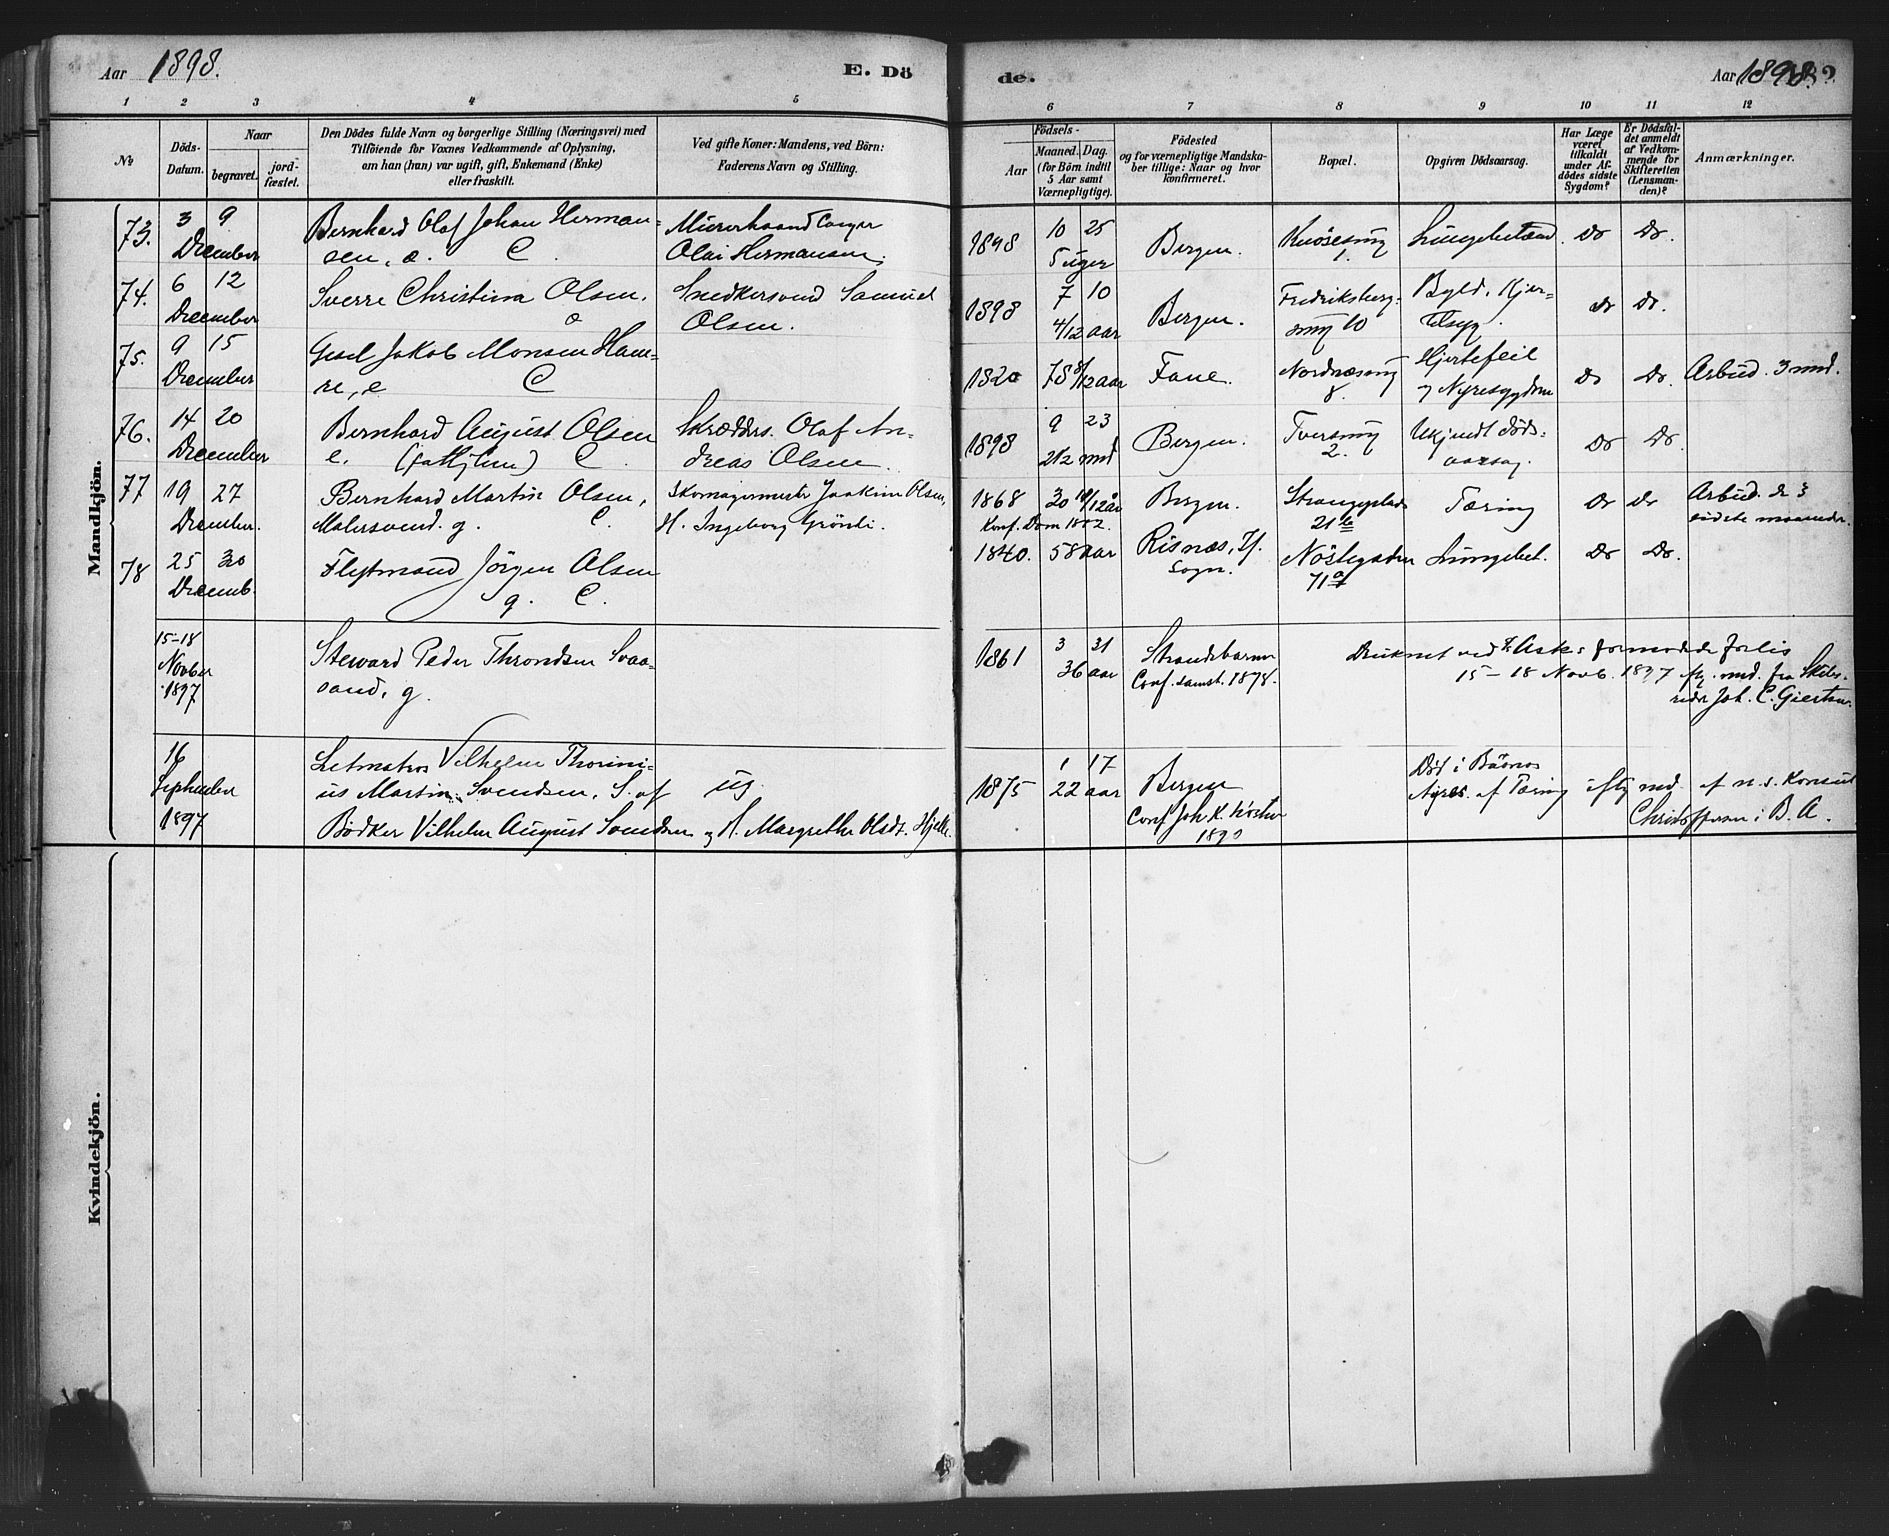 Aar 1898.
E. Dö
de.
Aar 1898.
1 2 3 4 5 6 7 8 9 10 11 12
No
Döds-Datum.
Naar
begravet.
jord-fæstet.
Den Dödes fulde Navn og borgerlige Stilling (Næringsvei) med
Tilföiende for Voxnes Vedkommende af Oplysning,
om han (hun) var ugift, gift, Enkemand (Enke)
eller fraskilt.
Ved gifte Koner: Mandens, ved Börn:
Faderens Navn og Stilling.
Födsels-
Aar
Maaned. Dag.
(for Börn indtil
5 Aar samt
Værnepligtige).
Födested
og for værnepligtige Mandska-
ber tillige: Naar og hvor
konfirmeret.
Bopæl.
Opgiven Dödsaarsag.
Har Læge
været
tilkaldt
under Af-
dödes sidste
Sygdom?
Er Dödsfal-
det anmeldt
af Vedkom-
mende for
Skifteretten
(Lensman-
den)?
Anmærkninger.
Mandkjön.
73. 3 9 Bernhard Olaf Johan Herman- 10 25
December sen, C. Olai Hermansen. 1898 5 uger Bergen. 1. Do Do.
74. 6 12 Sverre Christina Olsen. Snedkersvend Samuel 7 10 Fredriksberg-
December Olsen. 1898 4/12 aar Bergen. 10 Do Do.
75. 9 15 Jakob Monsen Ham- Hjertefeil
December re, e C 1820 78 8/12 aar Fane. 8. Nyresygdom Do Do. Arbud. 3 md.
76. 14 20 Bernhard August Olsen Skrædders. Olaf An- 9 23 Ukjendt Døds-
December C. dreas Olsen. 1898 2 1/2 md Bergen. 2. aarsag. Do Do.
77 19 27 Bernhard Martin Olsen, Skomagermester Joakim Olsen, 1868 30 Bergen. Tæring Do Do Arbud. de 3
December. Malersvend. g. C. H. Ingeborg 21 sidste maaneder.
78 25 30 Jørgen Olsen 1840. 58 aar Risnæs, Nöstegaden Lungebet. Do Do.
Decemb. g. C. Sogn. 71
15-18 Steward Peder Throndsen Svaa- 1861 3 31 Strandebarm Druknet ved formodede forlis
Novber sand, g. 36 aar Conf. 1878. 15-18 Novb. 1897 md. fra Skibs-
1897 reder Joh. C. Giertsen.
16 Letmatros Vilhelm Thorini- 1 17 Død i Buenos
September us Martin Svendsen, S. af ug. 1875 22 aar Bergen Ayres af Tæring md. af n. s. Konsul
1897 Bødker Vilhelm August Svendsen og H. Margrethe Olsdt. Hjelle. Conf. Joh. K. i B. A.
Kvindekjön.